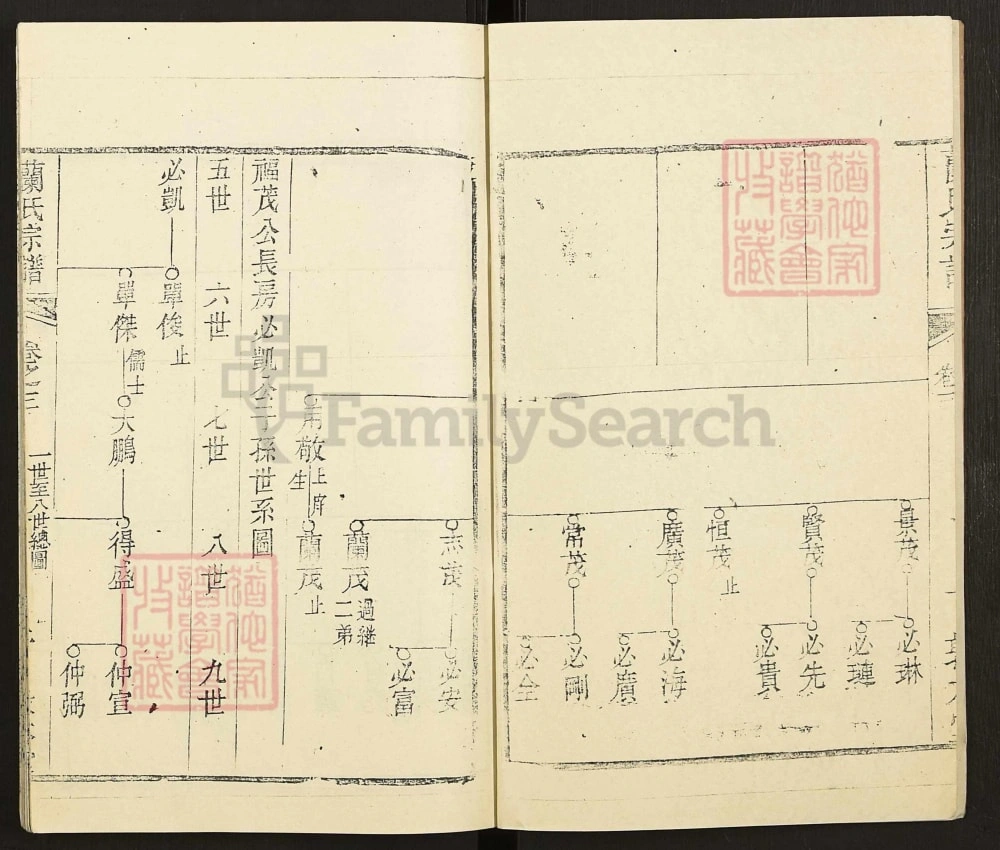 景茂
必琳
必璉
賢茂
必先
必貴
恒茂 止
廣茂
必海
必廣
常茂
必剛
必全
志茂
必安
必富
蘭茂 過繼二弟
敬 上庠生
蘭茂 止
福茂公長房必凱公子孫世系圖
五世 六世 七世 八世 九世
必凱
單俊 止
單傑 儒士
大鵬
得盛
仲宣
仲弼
蘭氏宗譜 卷之三 一世至八世總圖
猶他家譜學會收藏
猶他家譜學會收藏
FamilySearch